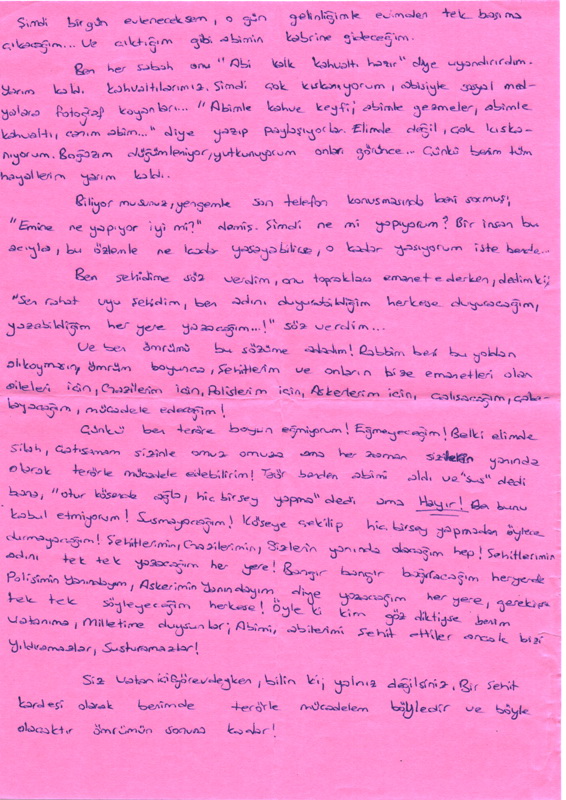 Şimdi birgün evleneceksem, o gün gelinliğimle evimden tek başıma
çıkacağım... Ve çıktığım gibi abimin kabrine gideceğim.
Ben her sabah onu "Abi kalk kahvaltı hazır" diye uyandırırdım.
Yarım kaldı kahvaltılarımız. Şimdi çok kıskanıyorum, abisiyle sosyal med-
yalara fotoğraf koyanları... "Abimle kahve keyfi, abimle gezmeler, abimle
kahvaltı, canım abim..." diye yazıp paylaşıyorlar. Elimde değil, çok kıska-
nıyorum. Boğazım düğümleniyor, yutkunuyorum onları görünce... Çünkü benim tüm
hayallerim yarım kaldı.
Biliyor musunuz, yengemle son telefon konuşmasında beni sormuş;
"Emine ne yapıyor iyi mi?" demiş. Şimdi ne mi yapıyorum? Bir insan bu
acıyla, bu özlemle ne kadar yaşayabilirse, o kadar yaşıyorum işte bende...
Ben şehidime söz verdim, onu topraklara emanet ederken, dedim ki;
"Sen rahat uyu şehidim, ben adını duyurabildiğim herkese duyuracağım,
yazabildiğim her yere yazacağım...!" söz verdim...
Ve ben ömrümü bu sözüme adadım! Rabbim beni bu yoldan
alıkoymasın, ömrüm boyunca, Şehitlerim ve onların bize emanetleri olan
aileleri için, Gazilerim için, Polislerim için, Askerlerim için, çalışacağım, çaba-
layacağım, mücadele edeceğim!
Çünkü ben teröre boyun eğmiyorum! Eğmeyeceğim! Belki elimde
silah, çatışamam sizinle omuz omuza ama her zaman sizlerin yanında
olarak terörle mücadele edebilirim! Terör benden abimi aldı ve "sus" dedi
bana, "otur köşende ağla, hiç birşey yapma" dedi ama Hayır! Ben bunu
kabul etmiyorum! Susmayacağım! Köşeye çekilip hiç birşey yapmadan öylece
durmayacağım! Şehitlerimin, Gazilerimin, Sizlerin yanında olacağım hep! Şehitlerimin
adını tek tek yazacağım her yere! Bangır bangır bağıracağım heryerde
Polisimin Yanındayım, Askerimin Yanındayım diye yazacağım her yere, gerekirse
tek tek söyleyeceğim herkese! Öyle ki kim göz diktiyse benim
vatanıma, Milletime duysunlar; Abimi, abilerimi şehit ettiler ancak bizi
Yıldıramazlar, Susturamazlar!
Siz vatan için görevdeyken, bilin ki; yalnız değilsiniz. Bir şehit
kardeşi olarak benimde terörle mücadelem böyledir ve böyle
olacaktır ömrümün sonuna kadar!